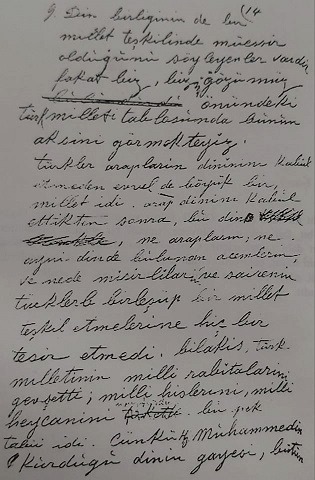 (14
9. Din birliginin de bir
millet teşkilinde müessir
olduğunu söyleyenler vardır
fakat biz, bizim gözümüz
önündeki
türk milleti tablosunda bunun
aksini görmekteyiz.
türkler arapların dinini kabul
etmeden evvel de böyük bir
millet idi. arap dinini kabul
ettikten sonra, bu din
, ne arapların, ne
ayni dinde bulunan acemlerin,
ve nede mısırlıların ve sairenin
türklerle birleşüp bir millet
teşkil etmelerine hiç bir
tesir etmedi. bilâkis, türk
milletinin milli rabıtalarını
gevşetti; milli hislerini, milli
heycanını bu pek
tabii idi. Çünkü Muhammedin
Kurduğu dinin gayesi, bütün